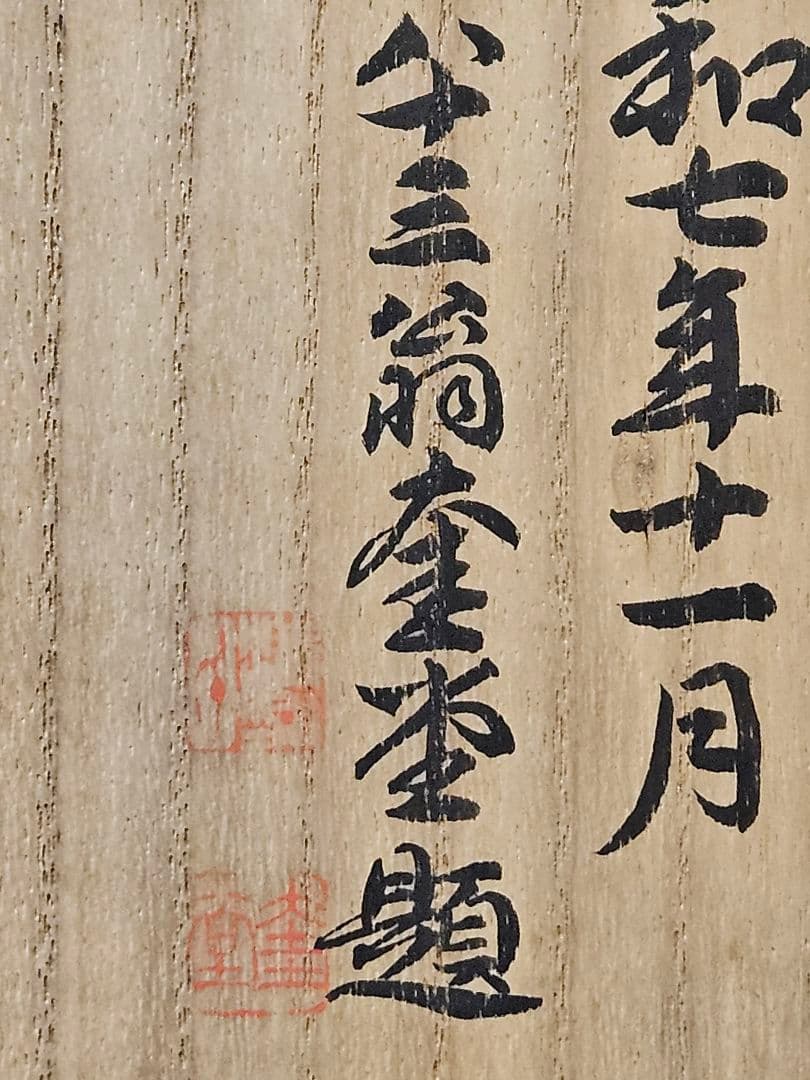 和七年十一月
八十三翁奎堂題
奎堂